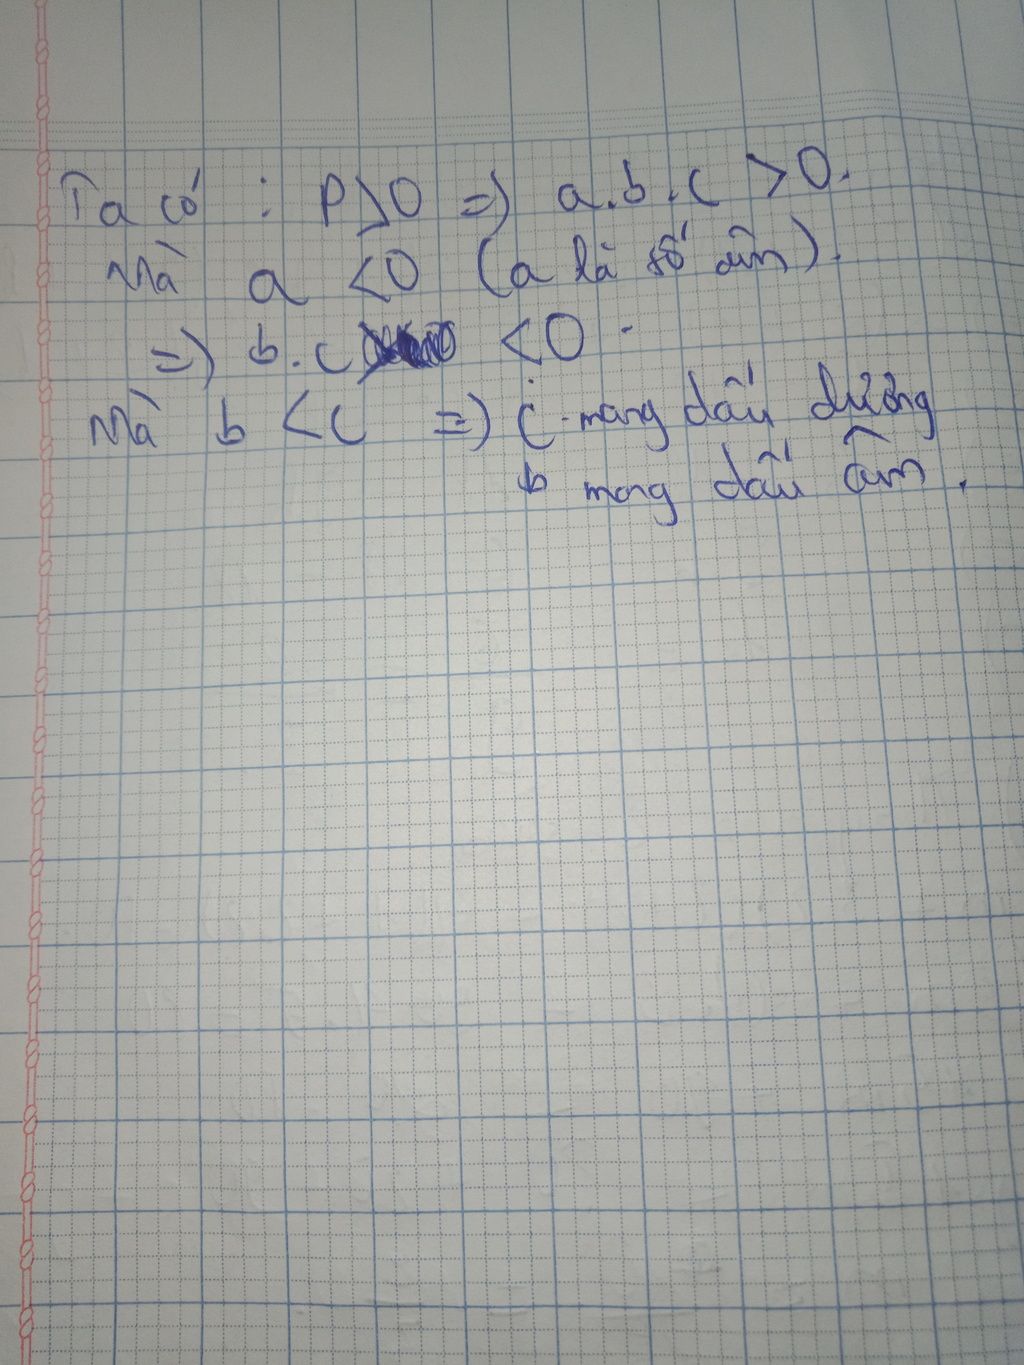 Ta có : P>0 => a.b.c >0.
Mà a <0 (a là số âm).
=> b.c <0.
Mà b <c => c mang dấu dương
b mang dấu âm.